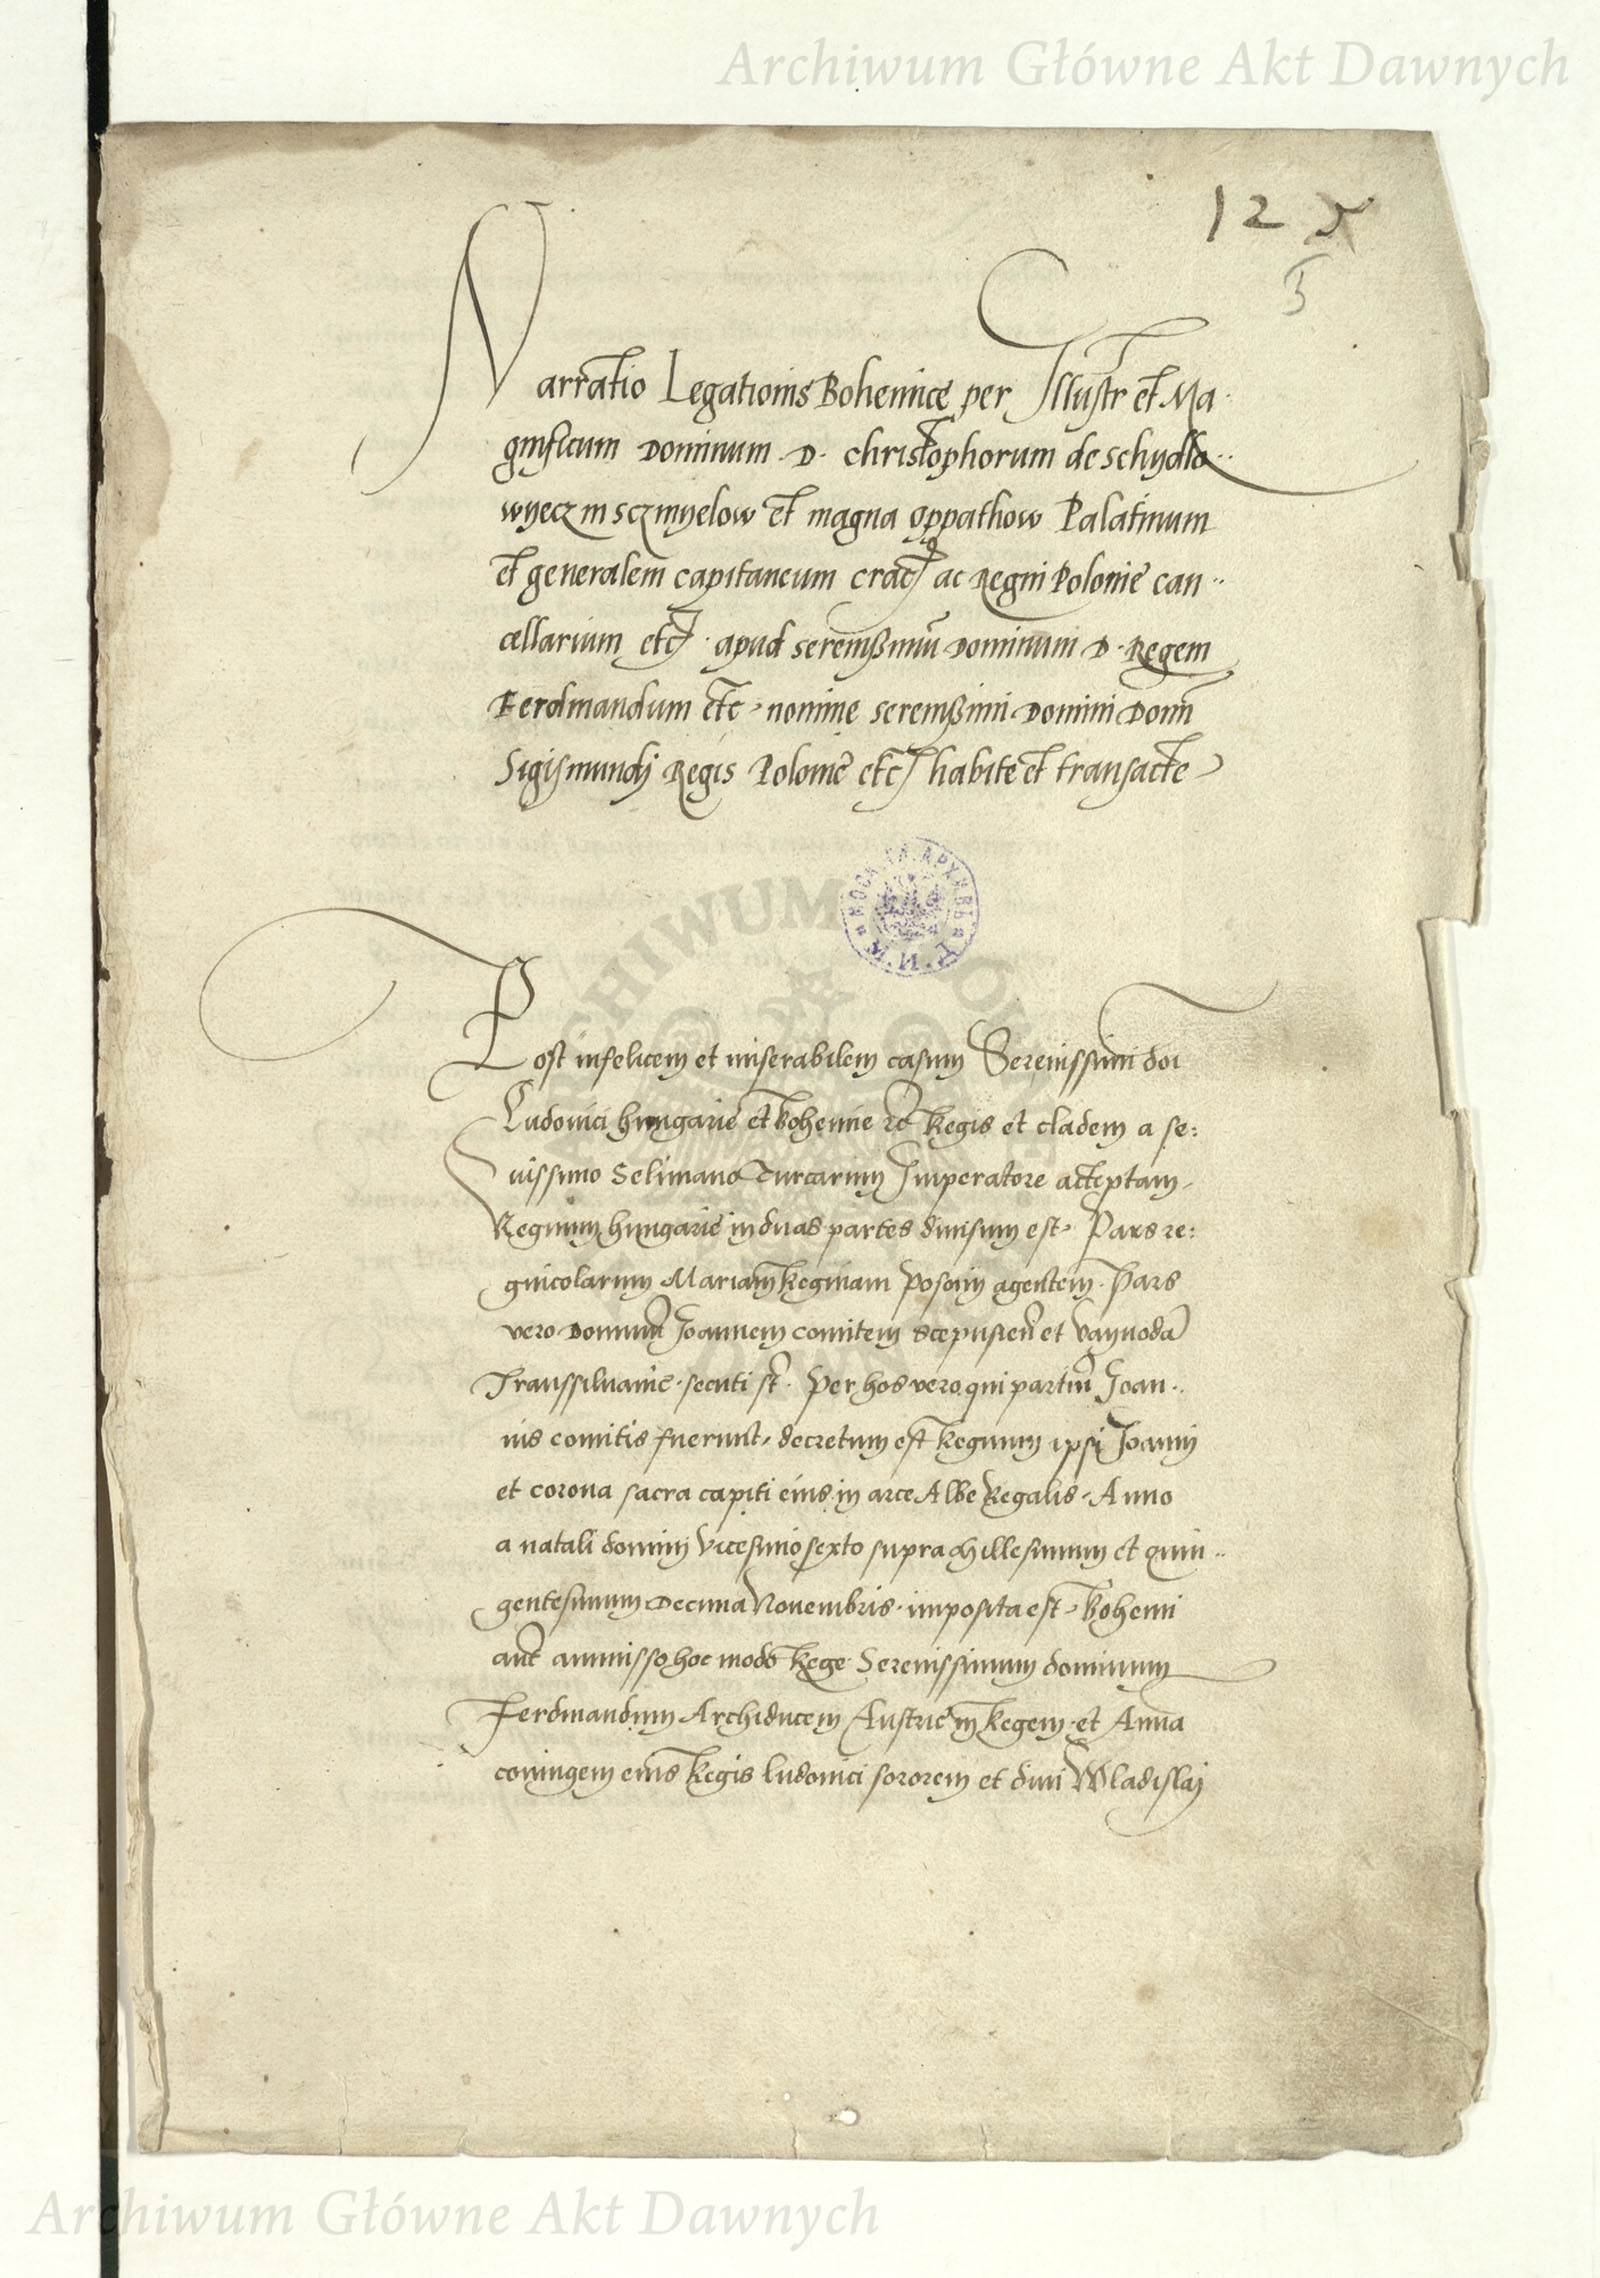 Archiwum Główne Akt Dawnych
12
5
Narratio Legationis Bohemice per Illustr et Ma
gnificum Dominum D. christophorum de schydlo
wyecz in sczmyelow et magna oppathow Palatinum
et generalem capitaneum crac ac Regni Polonie can
cellarium etc apud sereniss mu Dominum D. Regem
Ferdinandum etc nomine serenissimi Domini Domi
Sigismundi Regis Polonie etc habite et transacte
ARCHIWUM
Post infelicem et miserabilem casum Serenissimi doi
Ludovici hungarie et bohemie rc Regis et cladem a se:
vissimo Selimano Turcarum Imperatore acceptam,
Regnum hungarie in duas partes divisum est. Pars re:
gnicolarum Mariam Reginam Posonij agentem. Pars
vero Dominum Joannem comitem Scepusien et Vayvoda
Transsilvanie secuti st. Per hos vero qui partiu Joan
nis comitis fuerunt, decretum est Regnum ipsi Joanni
et corona sacra capiti eius in arce Albe Regalis. Anno
a natali domini Vicesimo sexto supra Millesimum et quin
gentesimum Decima Novembris imposita est. Bohemi
aut ammisso hoc modo Rege Serenissimum dominum
Ferdinandum Archiducem Austrie in Regem et Anna
coniugem eius Regis ludovici sororem et divi Wladislaj
Archiwum Główne Akt Dawnych